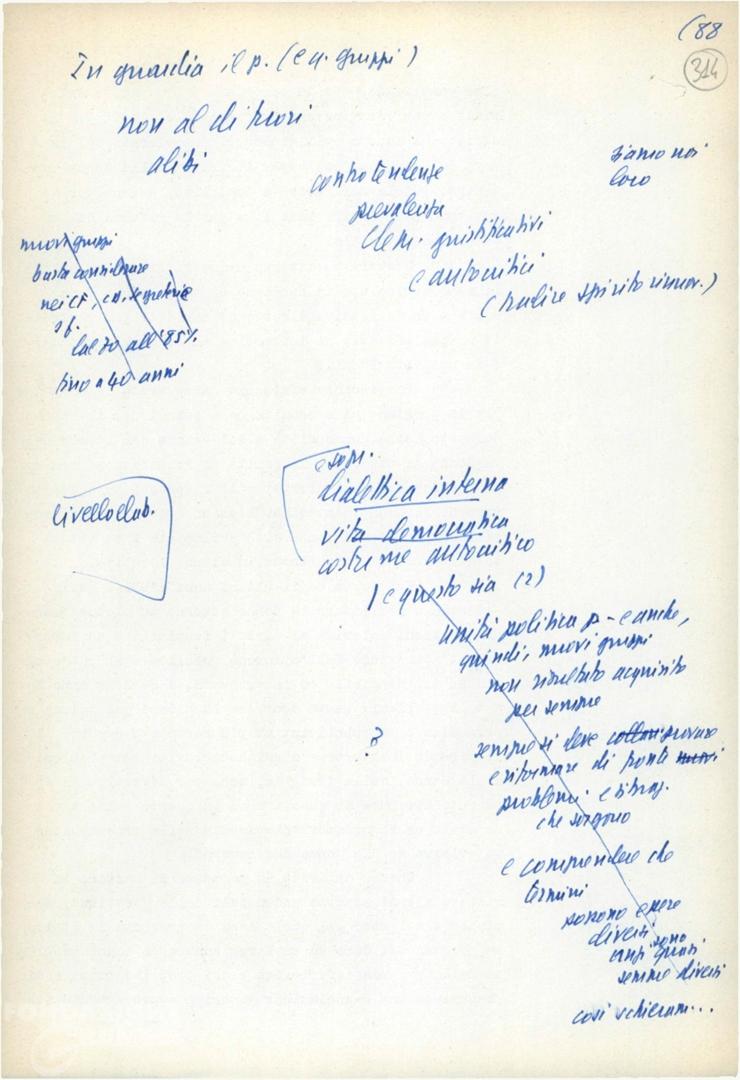 (88
314
In guardia il p. (e n. gruppi)
non al di fuori
alibi
siamo noi
loro
controtendenze
prevalenza
elem. giustificativi
e autocritici
(tradire spirito rinnov.)
nuovi gruppi
basta considerare
nei CF, segreterie
dal 70 all'85%
fino a 40 anni
e sopr.
dialettica interna
vita democratica
costume autocritico
livello elab.
e questo sia (2)
unità politica p - e anche,
quindi, nuovi gruppi
non risultato acquisito
per sempre
?
sempre si deve provare
e riformare di fronte nuovi
problemi e situaz.
che sorgono
e comprendere che
termini
possono essere
diversi sono
anzi quasi
sempre diversi
così schieram...